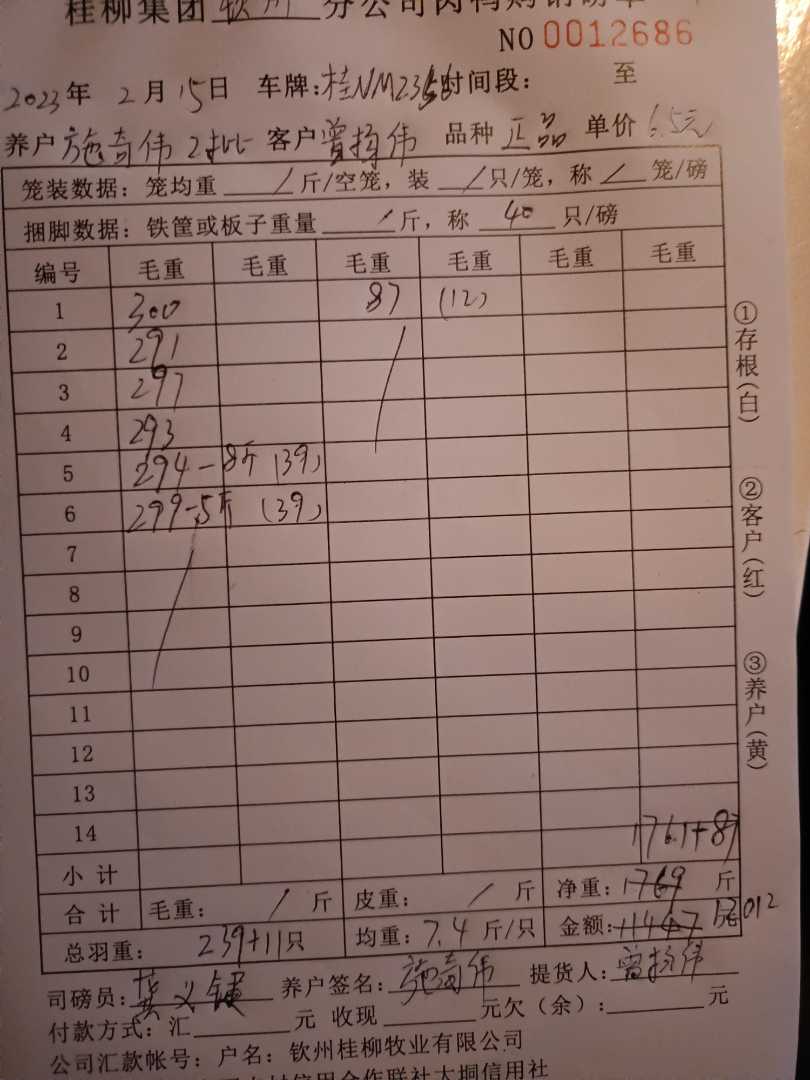 桂柳集团 钦州 分公司肉鸭购销磅单
NO 0012686
2023年 2月15日 车牌:桂NM23 时间段: 至
养户 施奇伟 2批 客户 曾扬伟 品种 正品 单价 6.5元
笼装数据: 笼均重 / 斤/空笼, 装 / 只/笼, 称 / 笼/磅
捆脚数据: 铁筐或板子重量 / 斤, 称 40 只/磅
编号 毛重 毛重 毛重 毛重 毛重 毛重
1 300 87 (12)
2 291
3 297
4 293
5 294-8斤 (39)
6 299-5斤 (39)
7
8
9
10
11
12
13
14
1761+87
小计
合计 毛重: / 斤 皮重: / 斤 净重: 1769 斤
总羽重: 239+11只 均重: 7.4 斤/只 金额: 11447 012
司磅员: 龚义健 养户签名: 施奇伟 提货人: 曾扬伟
付款方式: 汇 元 收现 元欠(余): 元
公司汇款帐号: 户名: 钦州桂柳牧业有限公司
农村信用合作联社大垌信用社
①存根(白)
②客户(红)
③养户(黄)